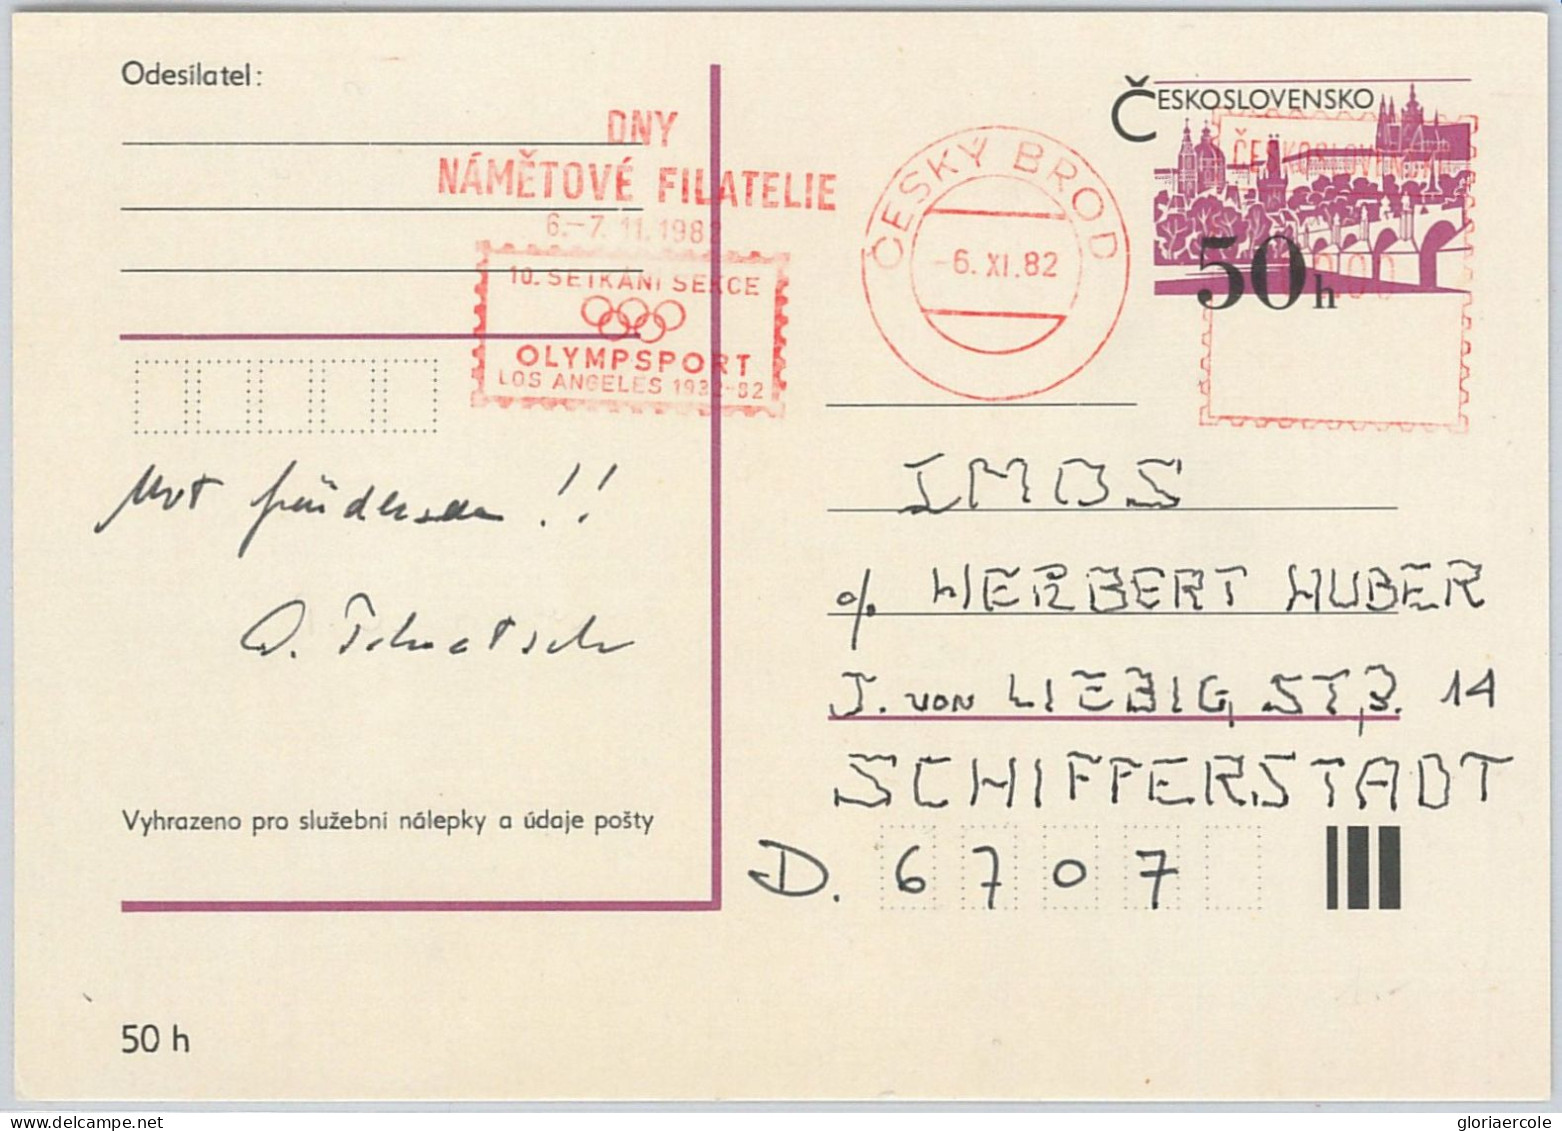 Odesílatel:
ČESKOSLOVENSKO
DNY
NÁMĚTOVÉ FILATELIE
6.-7. 11. 1982
10. SETKÁNÍ SEKCE
OLYMPSPORT
LOS ANGELES 1932-82
ČESKÝ BROD
-6. XI. 82
ČESKOSLOVENSKO
50 h
IMOS
c/. HERBERT HUBER
J. VON LIEBIG, STR. 14
SCHIFFERSTADT
D. 6707
Vyhrazeno pro služební nálepky a údaje pošty
50 h
gloriaercole